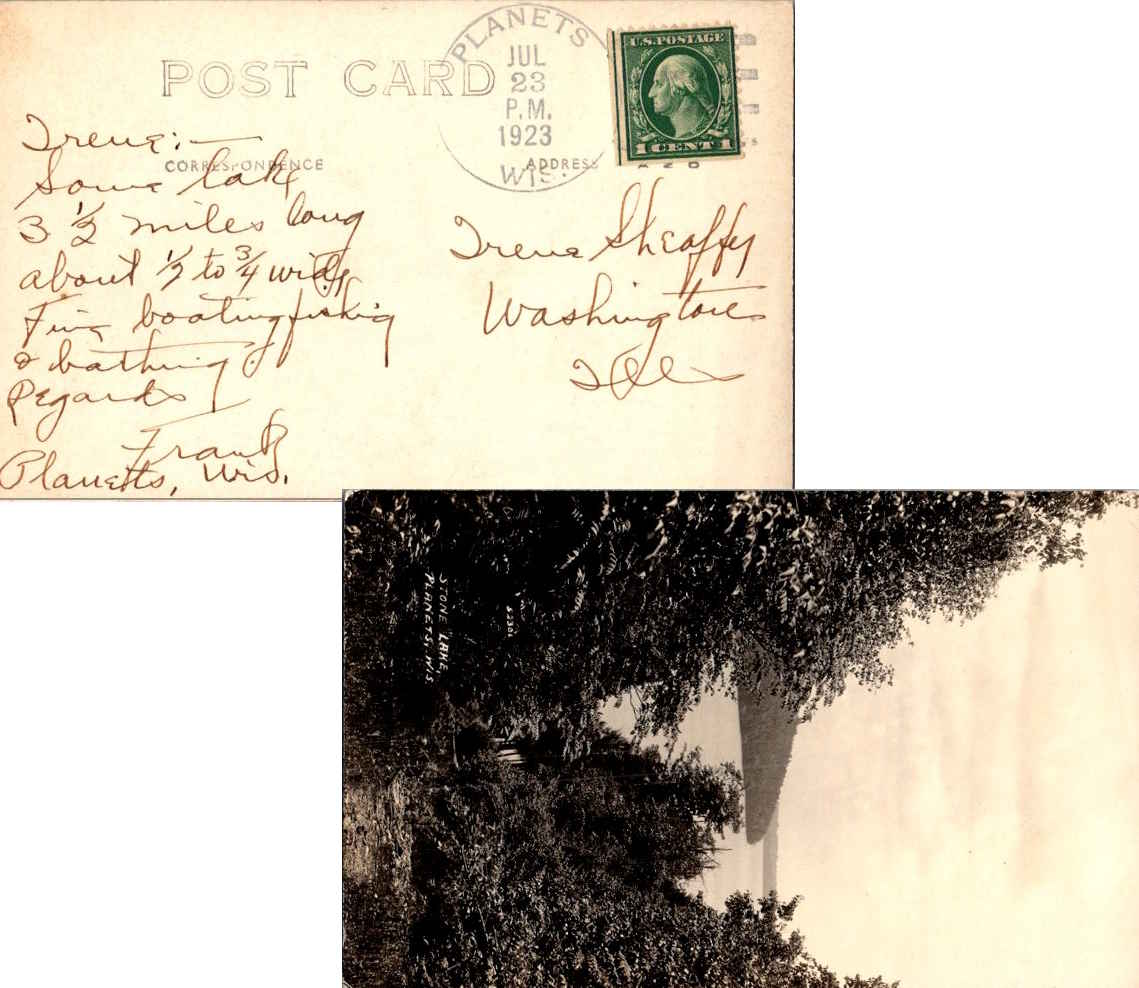 POST CARD
PLANETS
JUL
23
P.M.
1923
WIS.
U.S. POSTAGE
1 CENT 1
CORRESPONDENCE
ADDRESS
Irene:—
Some lake
3 1/2 miles long
about 1/2 to 3/4 wide,
Fine boating fishing
& bathing.
Regards
Frank
Planetts, Wis.
Irene Sheaffy
Washington
Ills
STONE LAKE.
PLANETS. WIS